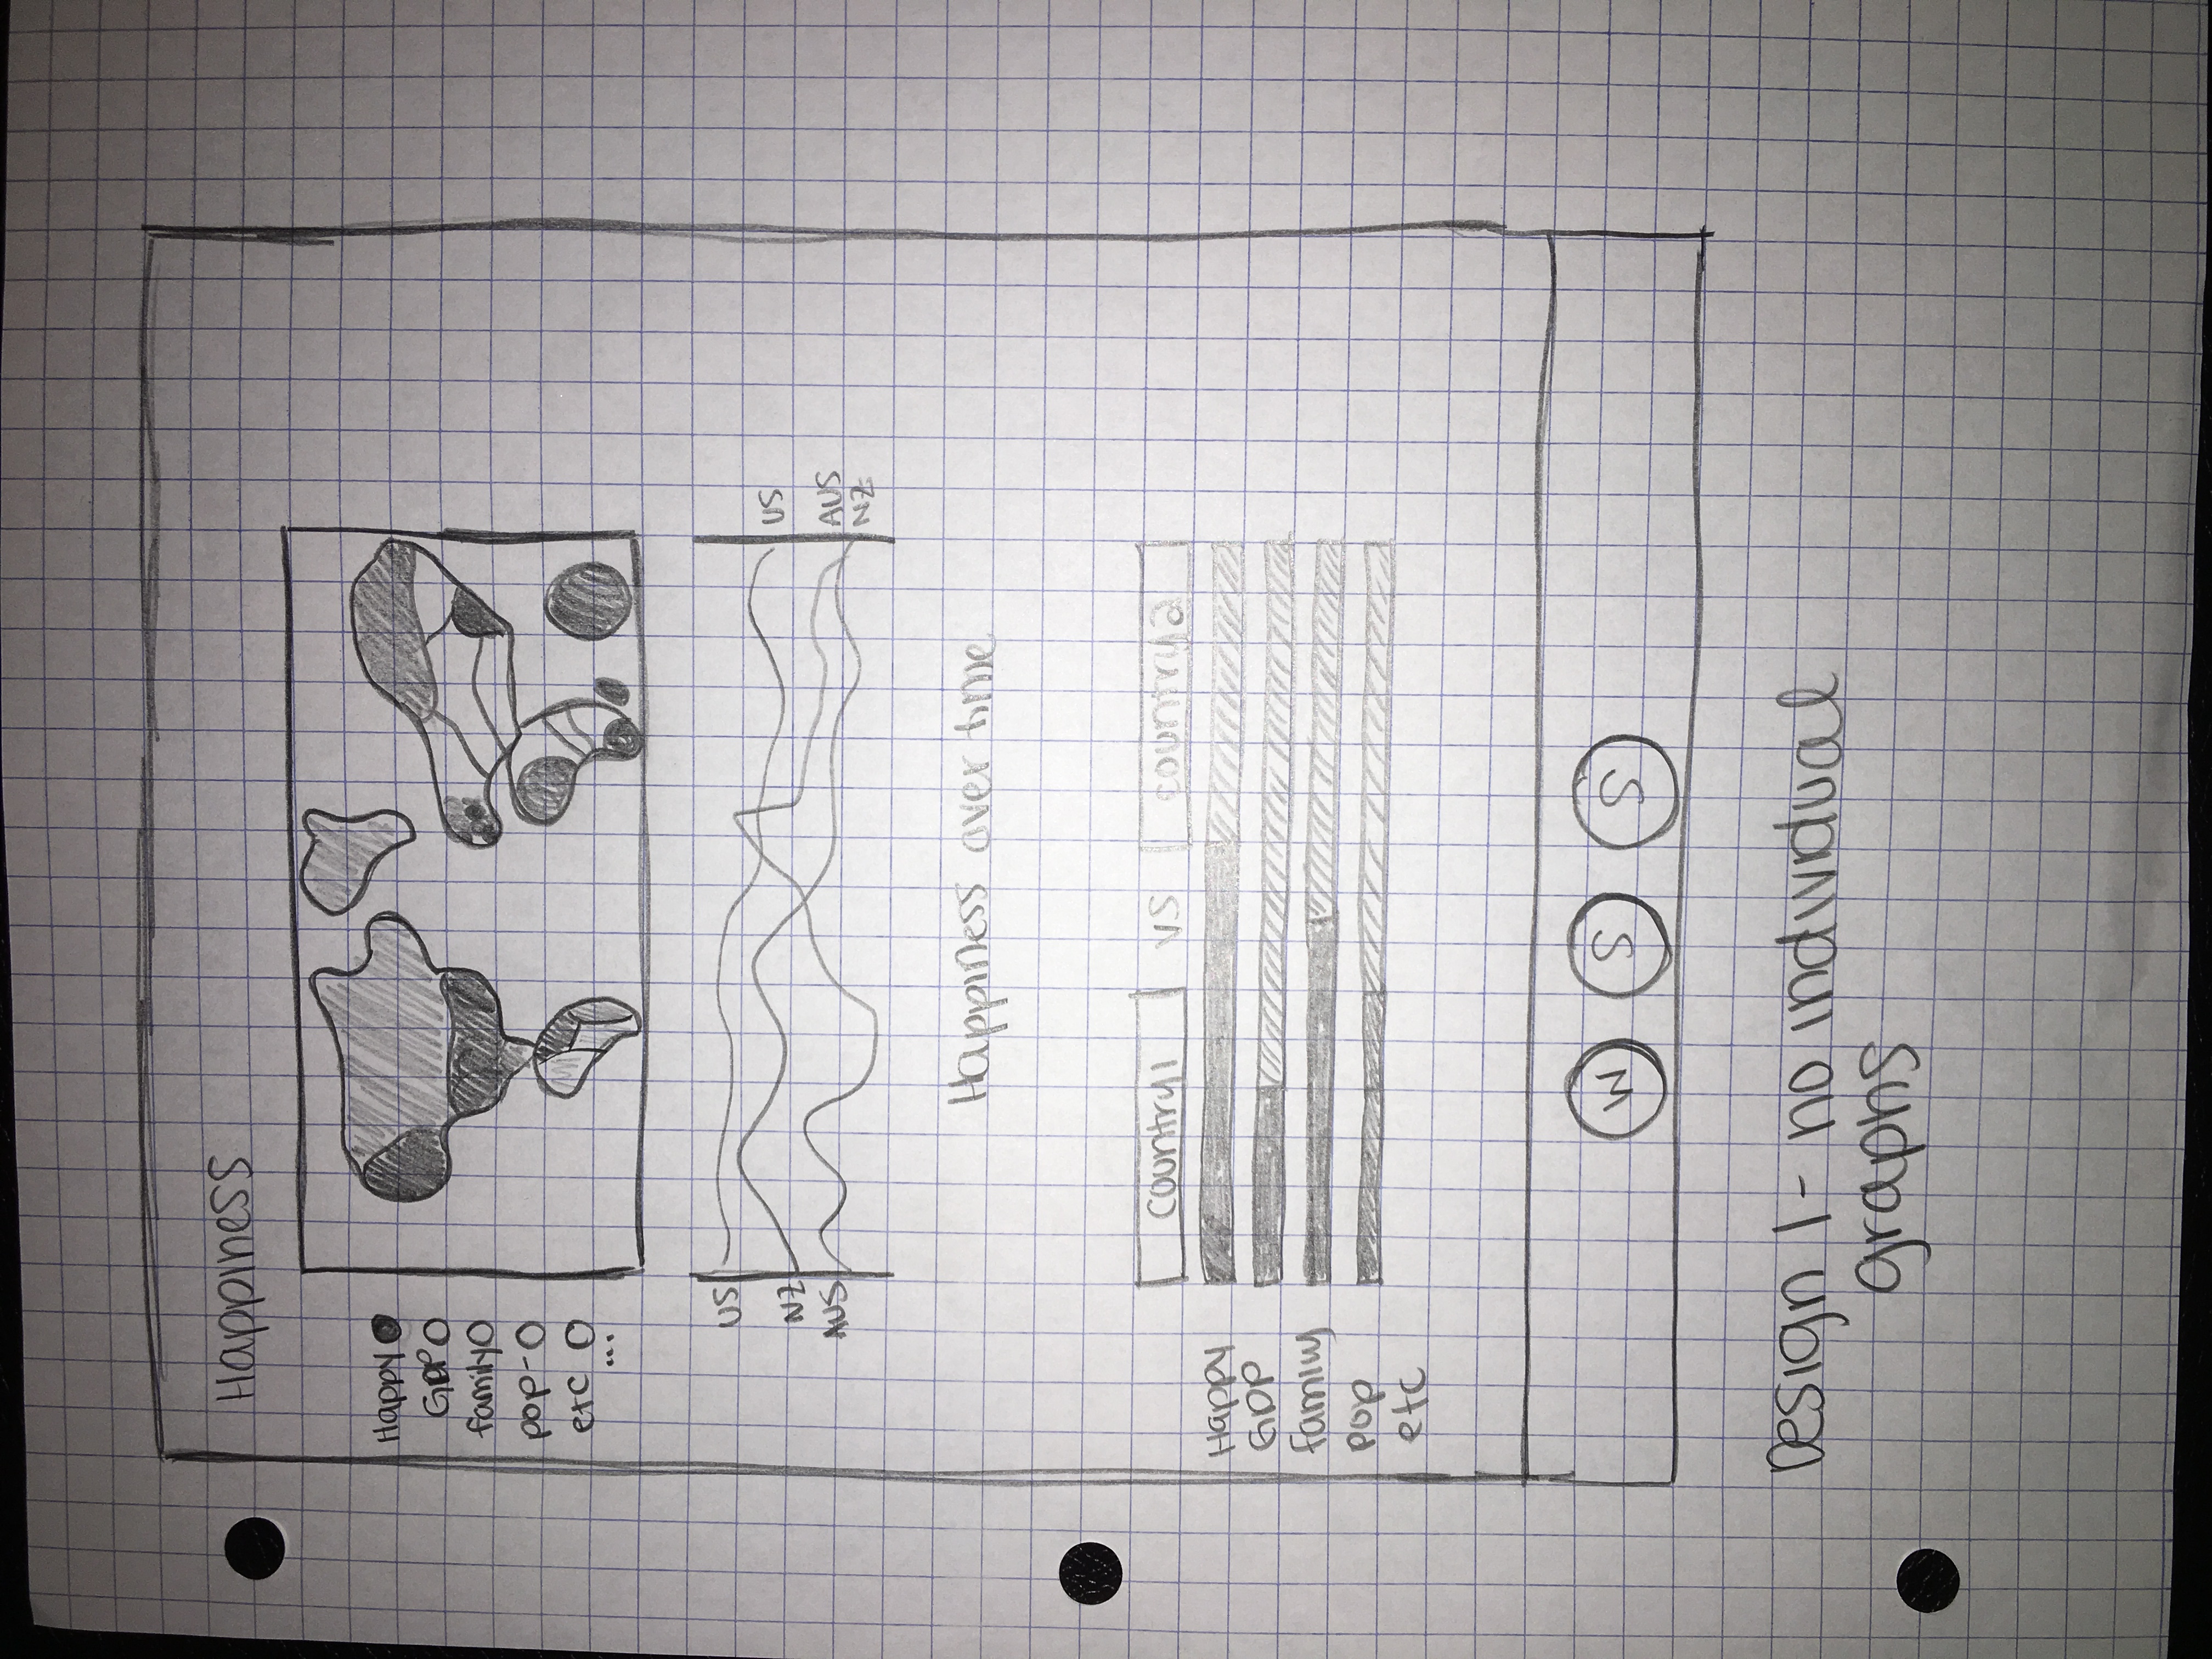 Happiness
Happy
GDP
family
pop-
etc
...
US
NZ
AUS
US
AUS
NZ
Happiness over time
country1 vs country2
Happy
GDP
family
pop
etc
W S S
Design 1 - no individual
graphs